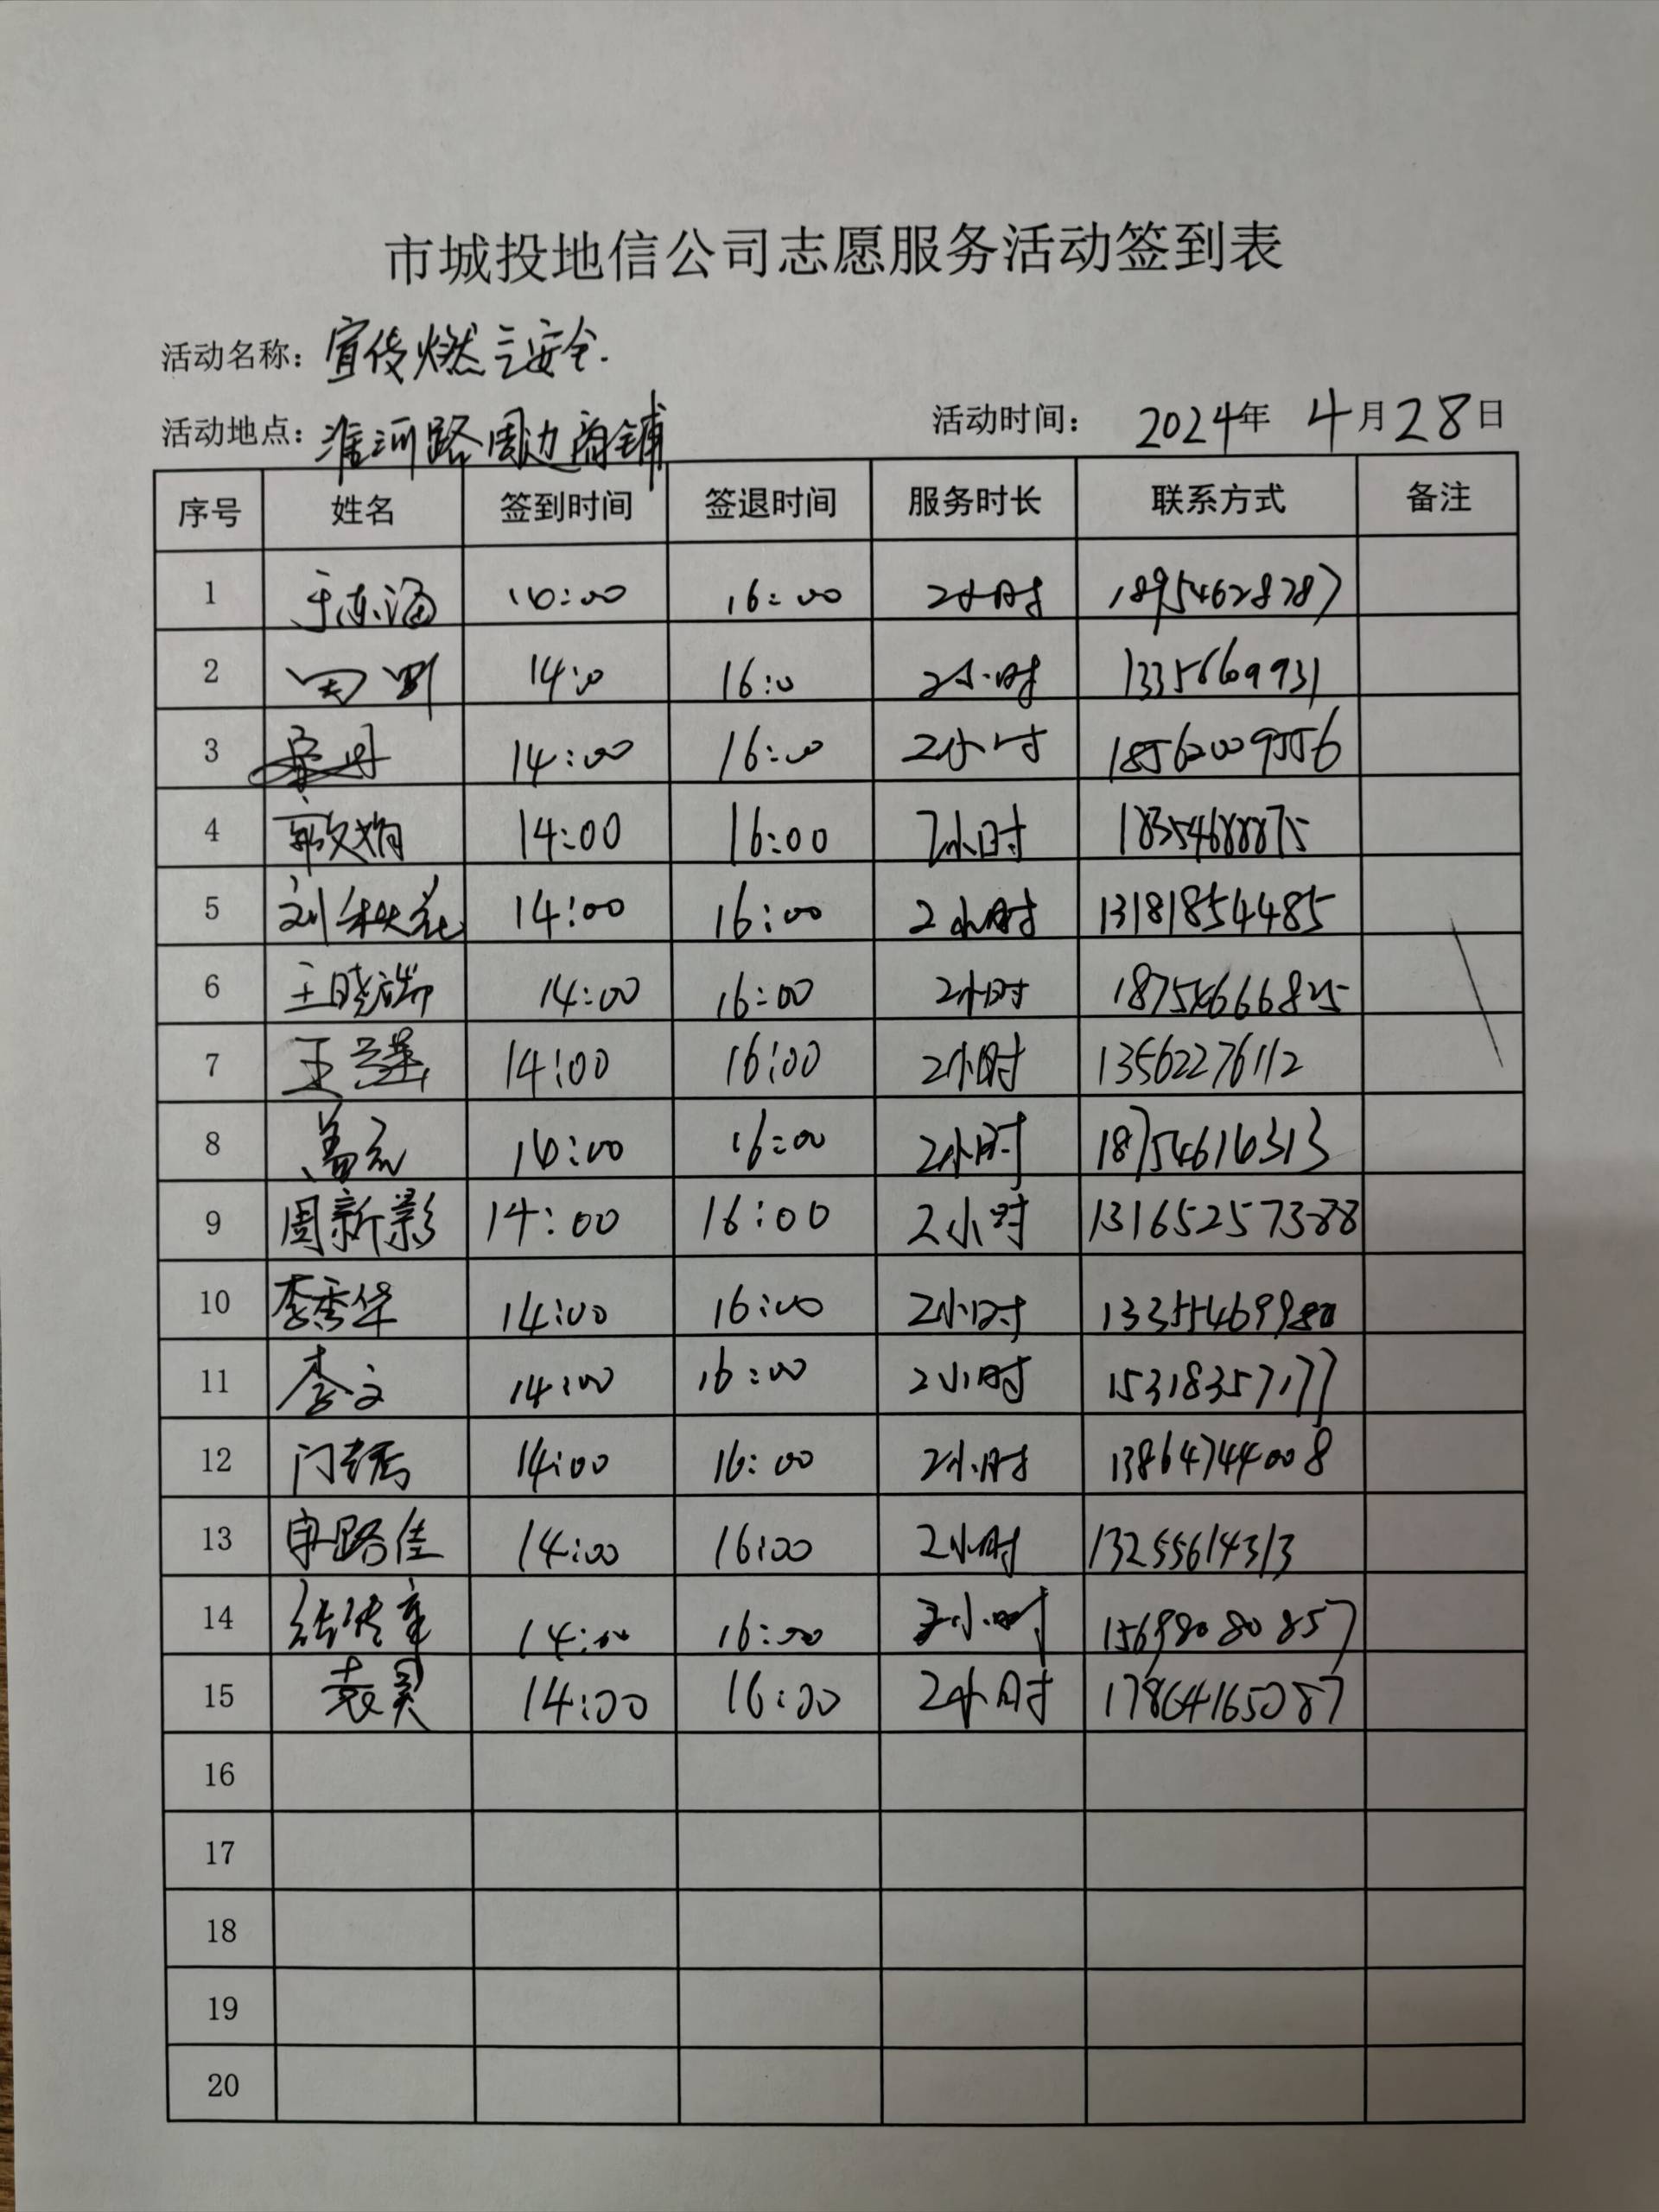 市城投地信公司志愿服务活动签到表
活动名称：宣传燃气安全.
活动地点：淮河路周边商铺 活动时间： 2024年 4月28日
序号 姓名 签到时间 签退时间 服务时长 联系方式 备注
1 16:00 2小时 18954628787
2 14:0 16:0 2小时
3 14:00 16:00 2小时 18562009556
4 14:00 16:00 2小时 18354688875
5 刘秋花 14:00 16:00 2小时 13181854485
6 王晓端 14:00 16:00 2小时 18754666825
7 王兰莲 14:00 16:00 2小时 13562276112
8 盖元 16:00 2小时
9 周新影 14:00 16:00 2小时 13165257388
10 李秀华 14:00 16:00 2小时
11 李文 14:00 16:00 2小时 15318357177
12 14:00 16:00 2小时 13864744008
13 路佳 14:00 16:00 2小时 13255614313
14 14:00 16:00 2小时 15698080857
15 袁昊 14:00 16:00 2小时 17864165087
16
17
18
19
20